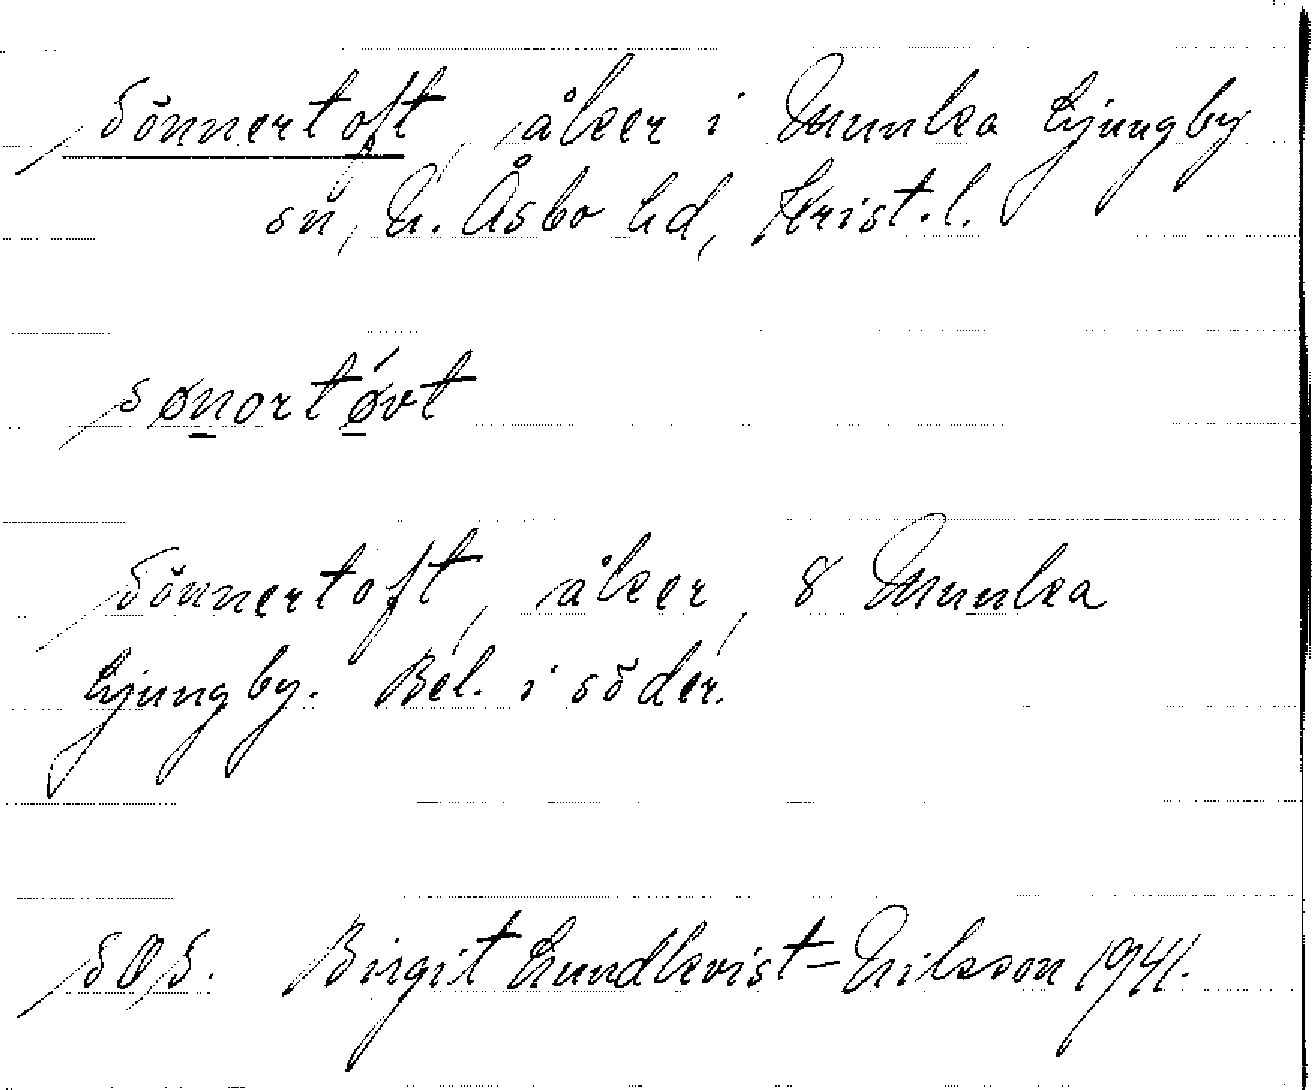 Sönnertoft, åker i Munka Ljungby
sn, N. Åsbo hd, Krist.l.
sønortǿvt
Sönnertoft, åker, 8 Munka
Ljungby. Bel. i söder.
SOS. Birgit Lundkvist-Nilsson 1941.